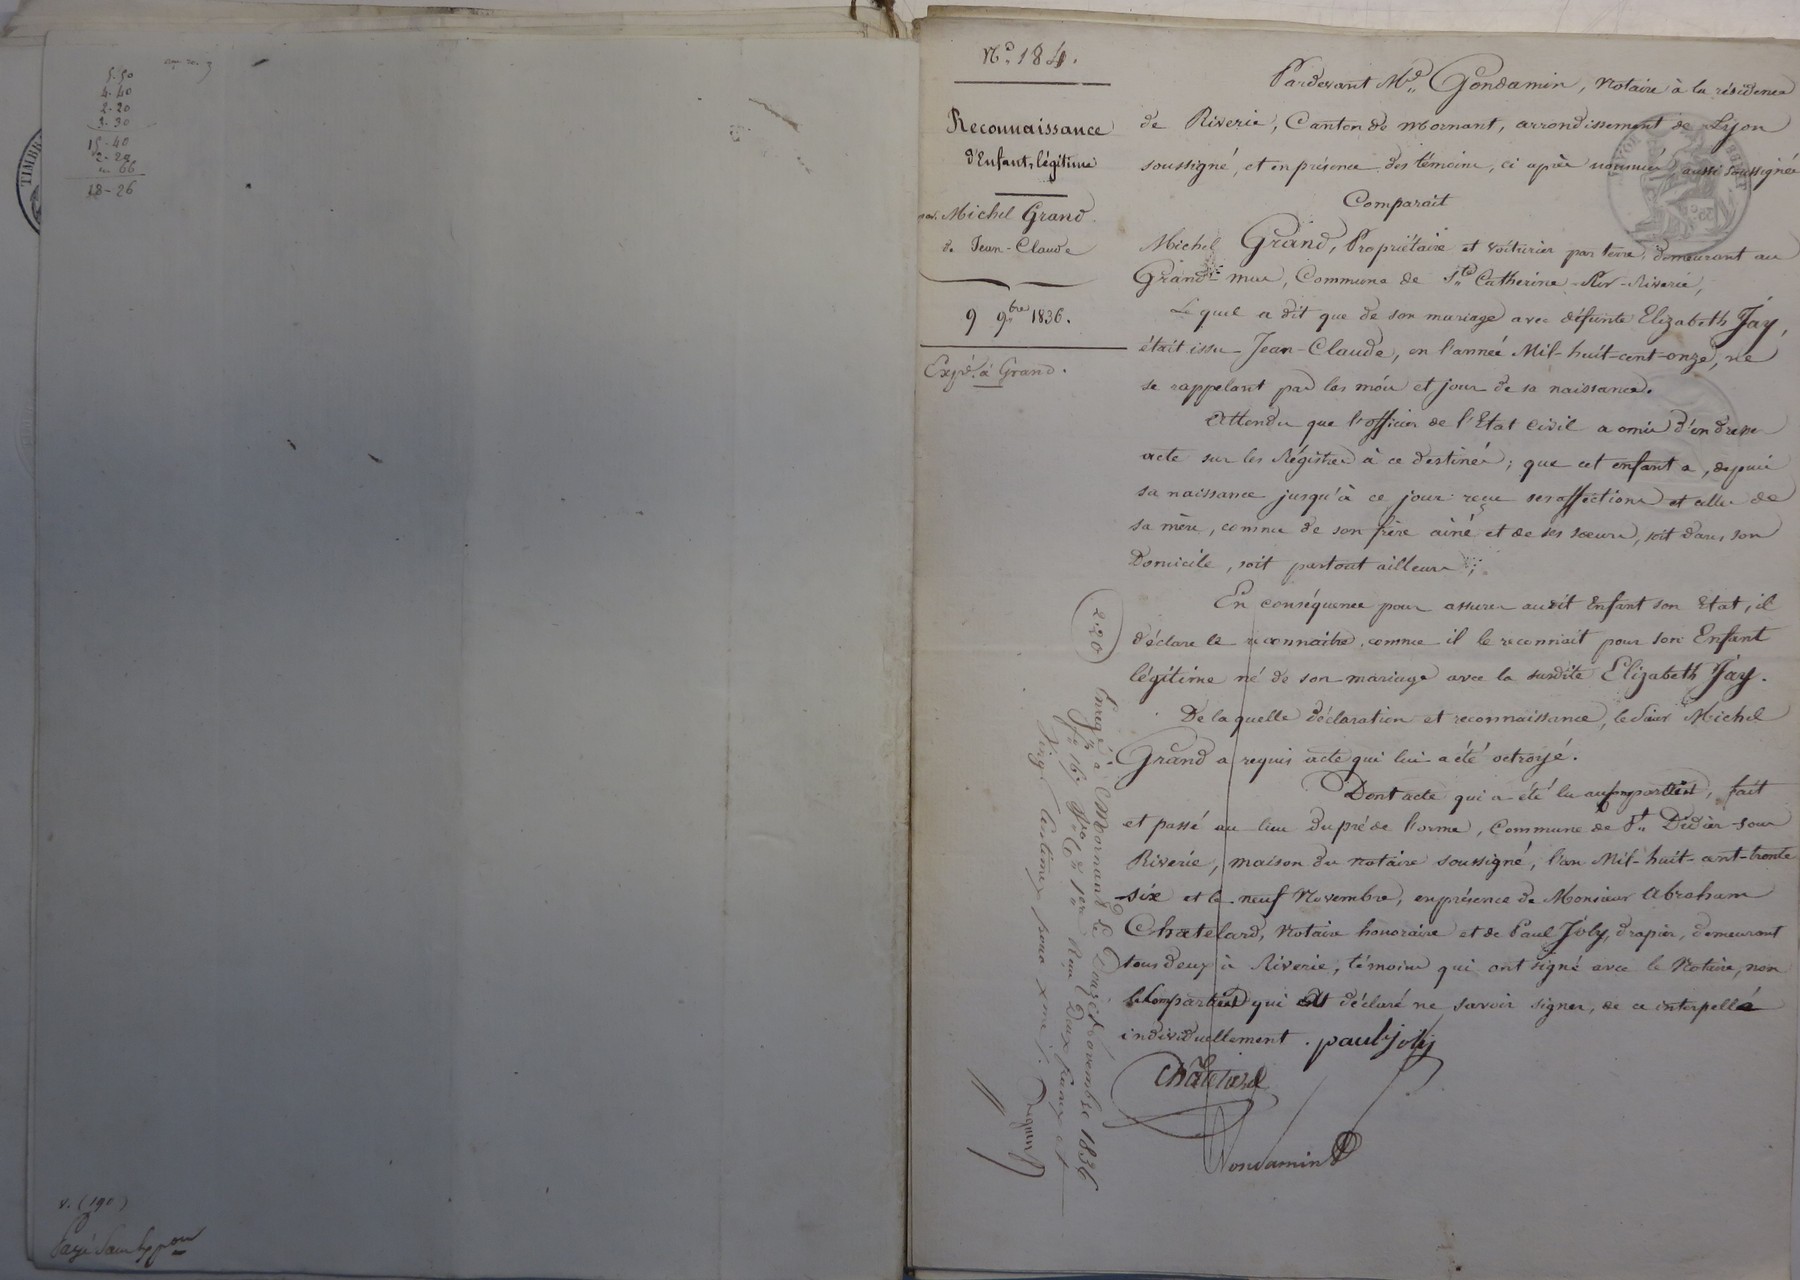 5-50
4-40
2-20
3-30
15-40
2-20
66
18-26
TIMBR
v. (190)
Payé
N.o 184.
Reconnaissance
d'Enfant légitime
par Michel Grand
de Jean-Claude
9 9bre 1836.
Expé. à Grand.
Pardevant Me Gondamin, Notaire à la résidence
de Riverie, Canton de Mornant, arrondissement de Lyon
soussigné, et en présence des témoins, ci après nommés aussi soussignés
Comparait
Michel Grand, Propriétaire et voiturier par terre, demeurant au
Grand-mur, Commune de Ste Catherine-sur-Riverie,
Lequel a dit que de son mariage avec défunte Elizabeth Jay,
était issu Jean-Claude, en l'année Mil-huit-cent-onze, ne
se rappelant pas les mois et jour de sa naissance.
Attendu que l'officier de l'Etat Civil a omis d'en dresser
acte sur les Régistres à ce destinés; que cet enfant a, depuis
sa naissance jusqu'à ce jour reçu ses affections et celles de
sa mère, comme de son frère ainé et de ses soeurs, soit dans son
Domicile, soit partout ailleurs;
En conséquence pour assurer audit Enfant son Etat, il
déclare le reconnaitre, comme il le reconnait pour son Enfant
légitime né de son mariage avec la susdite Elizabeth Jay.
De laquelle déclaration et reconnaissance, le Sieur Michel
Grand a requis acte qui lui a été octroyé.
Dont acte qui a été lu au comparant, fait
et passé au lieu du pré de l'orme, Commune de St Didier-sous
Riverie, maison du notaire soussigné, l'an Mil-huit-cent-trente
six et le neuf Novembre, en présence de Monsieur Abraham
Chatelard, Notaire honoraire et de Paul Joly, drapier, demeurant
tous deux à Riverie, témoins qui ont signé avec le Notaire, non
le Comparant qui a déclaré ne savoir signer, de ce interpellé
individuellement. paul joly
Chatelard
Gondamin
2-20
Enregé à Mornant le Douze Novembre 1836
fo 167 Vo Ce 1er Reçu Deux francs et
Vingt Centimes pour xme